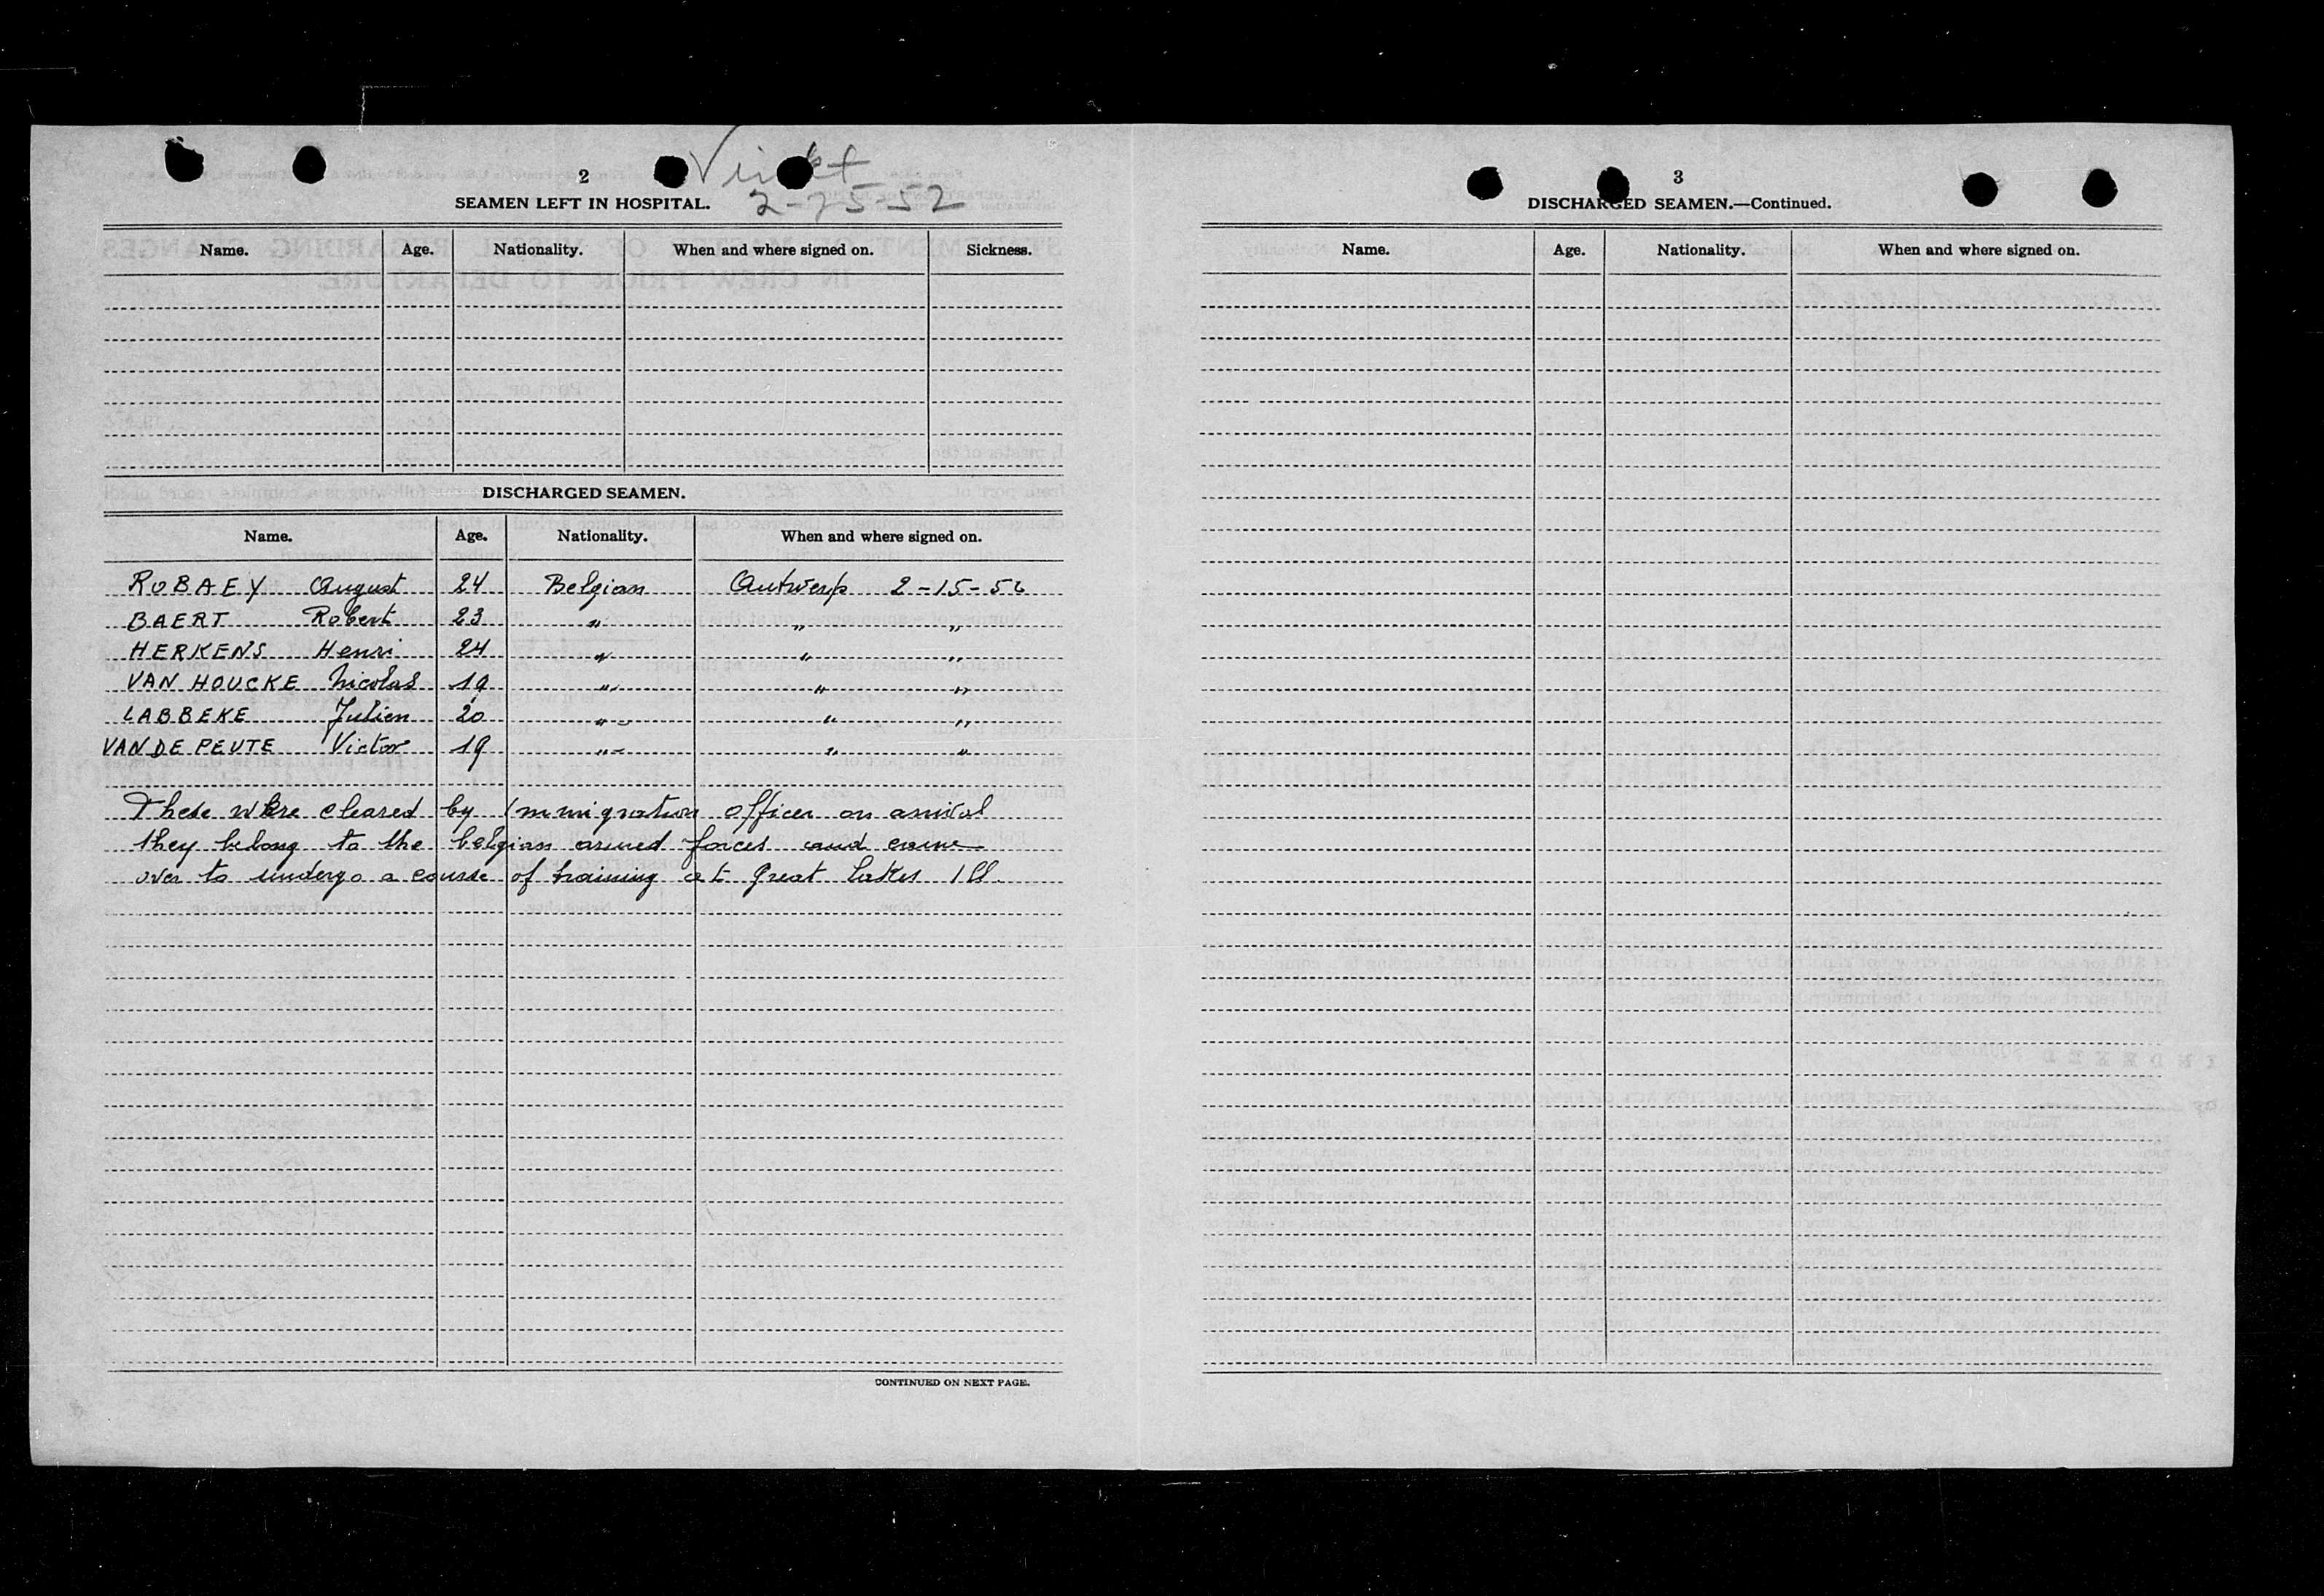 2
2-25-52
SEAMEN LEFT IN HOSPITAL.
Name. Age. Nationality. When and where signed on. Sickness.
DISCHARGED SEAMEN.
Name. Age. Nationality. When and where signed on.
ROBAEY August 24 Belgian Antwerp 2-15-52
BAERT Robert 23 " " "
HERKENS Henri 24 " " "
VAN HOUCKE Nicolas 19 " " "
LABBEKE Julien 20 " " "
VAN DE PEUTE Victor 19 " " "
These where cleared by Immigration officer on arrival
they belong to the belgian armed forces and came
over to undergo a course of training at Great Lakes Ill.
CONTINUED ON NEXT PAGE.
3
DISCHARGED SEAMEN.—Continued.
Name. Age. Nationality. When and where signed on.